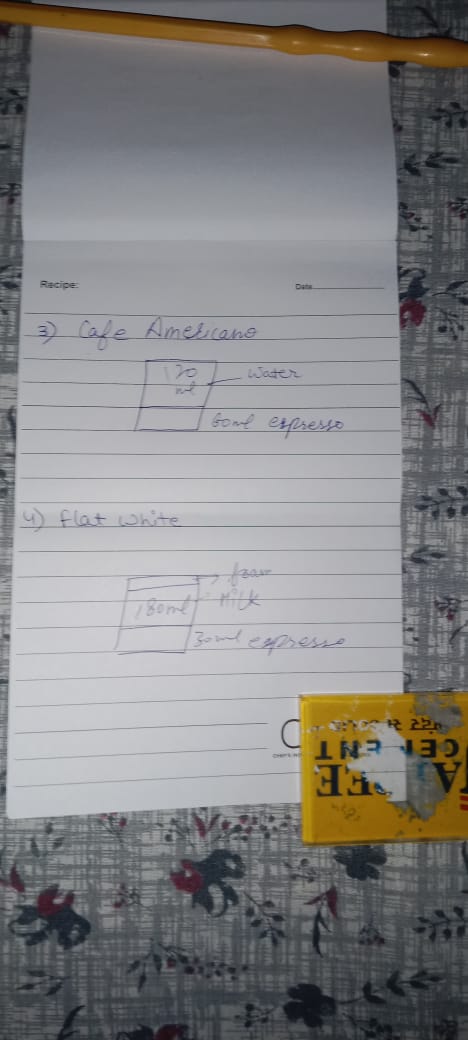 Recipe:
Date
3) Cafe Americano
120
ml
Water
60ml espresso
4) Flat White
foam
180ml
Milk
30ml espresso